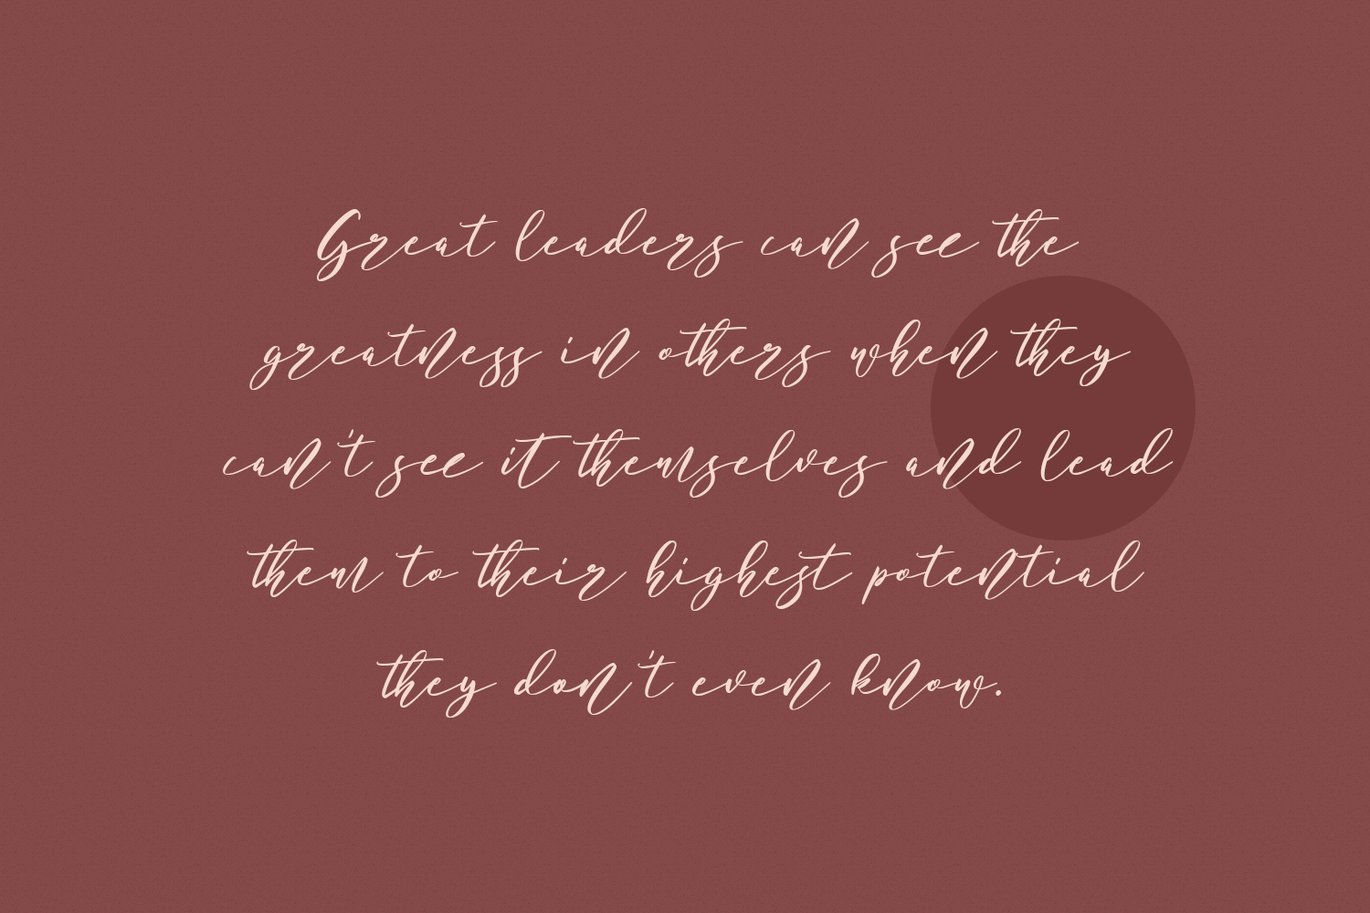 Great leaders can see the
greatness in others when they
can't see it themselves and lead
them to their highest potential
they don't even know.